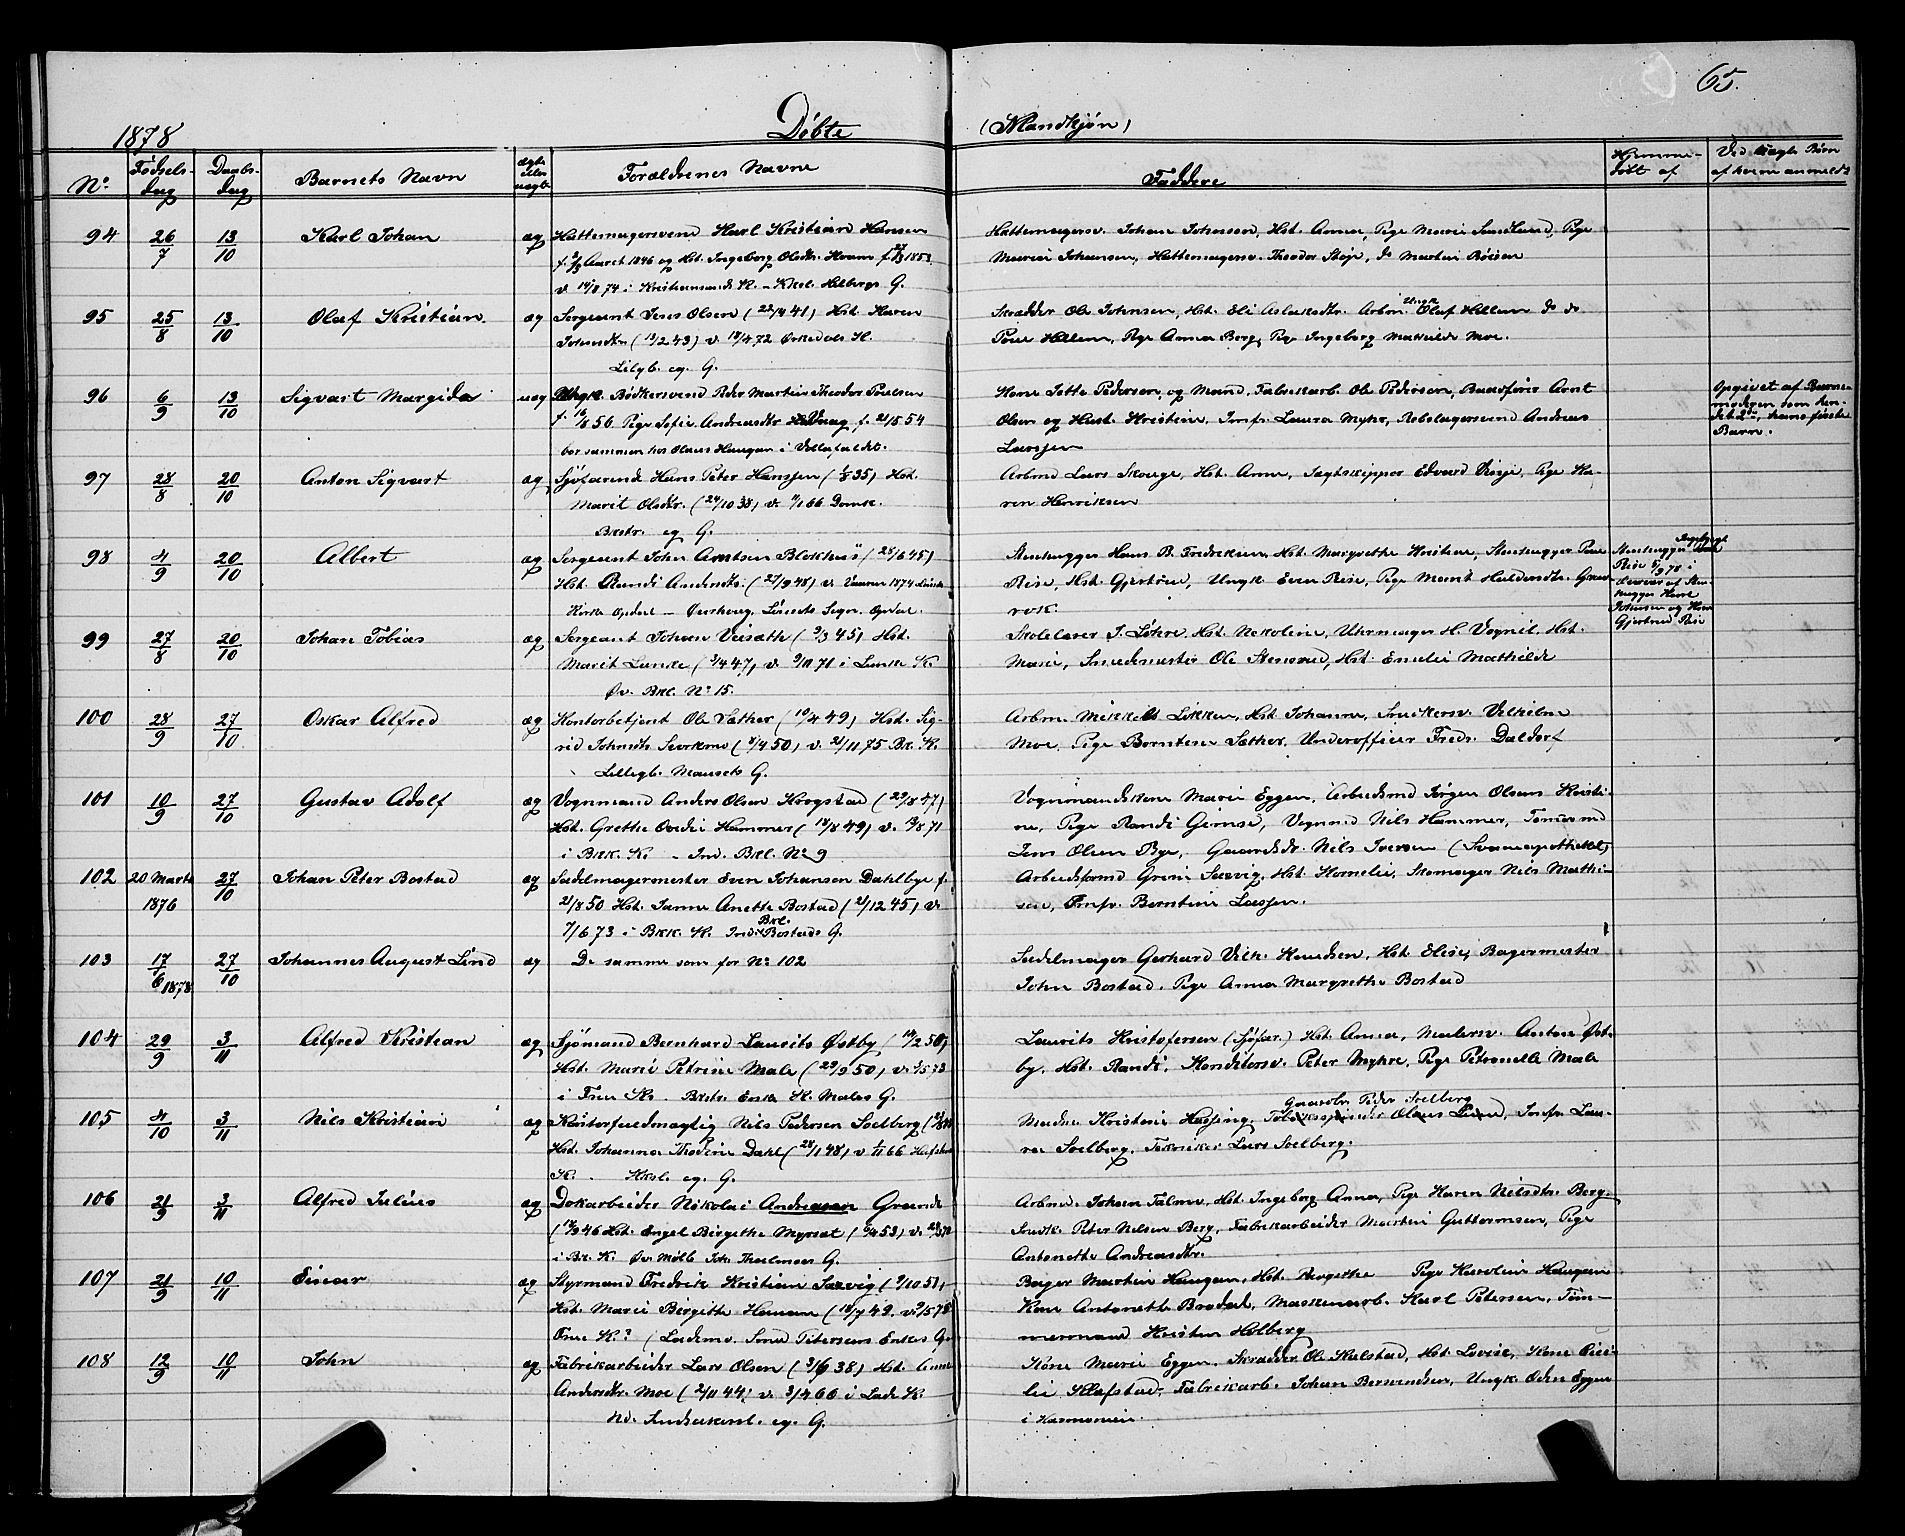 65.
1878
Döbte
(Mandkjön)
No. Födsels-dag Daabs-dag Barnets Navn ægte eller uægte Forældrenes Navne Faddere Hjemme-döbt af Ved uægte Börn af hvem anmeldt
94 26/7 13/10 Karl Johan æg Hattemagersvend Karl Kristian Hansen
Aaret 1846 og Hst. Ingeborg Olsdtr. f. 1853
i Kristiansunds K. Hilbergs G.
Hattemagersv. Johan Johansen, Hst. Anna, Pige Marie Sundlund, Pige
Marie Johansen, Hattemagersv. Theodor Stöp, do Martin
95 25/8 13/10 Olaf Kristian æg Sergeant Jens Olsen (22/4 41) Hst. Karen
Johnsdtr. (13/2 43) v. 18/4 72 Orkedals K.
Lilgb. eg. G.
Skrædder Ole Johnsen, Hst. Eli Aslaksdtr. Arbm. Olaf Hellem do do
Hellem, Pige Anna Berg, Pige Ingeborg Mathilde Moe.
96 6/9 13/10 Sigvart Margido uæg Ungk. Bödkersvend Peder Martin Theodor Poulsen
f. 16/8 56 Pige Sofie Andreasdtr. f. 21/8 54
bor sammen hos Olaus Haugan i Vollafaldet.
Kone Jette Pedersen og Mand, Fabrikarb. Ole Pedersen, Arnt
Olsen og Hust. Kristine, Jmfr. Laura Myhr, Rebslagersvend Andreas
Larssen
Opgivet af Barnemoderen som hendet 2det, hans förste Barn.
97 28/8 20/10 Anton Sigvart æg Sjöfarende Hans Peter Hanssen (1/8 35) Hst.
Marit Olsdtr. (24/10 38) v. 11/1 66 Domk.
Bkstr. eg G.
Arbmd Lars Skauge, Hst. Anne, Jagtskipper Edvard Vinje, Pige Ka-
ren Henriksen
98 4/9 20/10 Albert æg Sergeant John Arntsen Blokhus (25/6 45)
Hst. Randi Arntsdtr. (27/9 48) v. 1874
Kirke Opdal - Ourhaug, Lönsets Sogn. Opdal.
Stenhugger Hans B. Fredriksen, Hst. Margrethe Kristine, Stenhugger
Rise, Hst. Gjertrud, Ungk. Even Rise, Pige Marit Haldosdtr.
vok
Stenhugger
Rise 5/9 78 i
Nærvær af Sten-
hugger
Johnsen og Kone
Gjertrud Rise
99 27/8 20/10 Johan Tobias æg Sergeant Johan Veiseth (3/3 45) Hst.
Marit Lunke (2/4 47) v. 9/11 71 i K.
Öv. Bkl. No 15.
Skolelærer J. Löhre, Hst. Nikoline, Uhrmager H. Vognil, Hst.
Marie, Smedmester Ole Stensrud, Hst. Emelie Mathilde
100 28/9 27/10 Oskar Alfred æg Kontorbetjent Ole Sæther (10/4 49) Hst. Sig-
rid Johnsdtr. Svorkmo (4/4 50) v. 21/11 75 Bk. K.
Lillegb. Mausets G.
Arbm. Mikkel Likken, Hst. Johanne, Snedkersv. Vilhelm
Moe, Pige Berntine Sæther, Underofficer Fredr. Daldorf
101 10/9 27/10 Gustav Adolf æg Vognmand Anders Olsen Krogstad (29/8 47)
Hst. Grethe Ovedie Hammer (18/8 49) v. 13/8 71
i Bkk. K. - Ind. Bkl. No 9
Vognmandskone Marie Eggen, Arbeidsmd Jörgen Olsens Kristi-
ne, Pige Randi Gimse, Vognmd Nils Hammer, Tömmermd
Jens Olsen Bye, Gaardsdr. Nils Iversen (Svaneapotheket)
102 20 Marts 1876 27/10 Johan Peter Bostad æg Sadelmagermester Even Johansen Dahlbye f.
21/8 50 Hst. Janna Anette Bostad (21/12 45) v.
7/6 73 i Bkk. K. Ind. Bkl. Bostads G.
Arbeidsformd Grim Sarvig, Hst. Kornelie, Skomager Nils Mathi-
sen, Jmfr. Berntine Lassen.
103 17/6 1878 27/10 Johannes August Lind æg De samme som for No 102
Sadelmager Gerhard Vilh. Knudsen, Hst. Elise, Bagermester
John Bostad, Pige Anna Margrethe Bostad
104 29/9 3/11 Alfred Kristian æg Sjömand Bernhard Laurits Östby (14/2 50)
Hst. Marie Petrine Male (29/9 50) v. 3/5 73
i Frue K. Bkstr. Enke H. Males G.
Laurits Kristofersen (Sjöfar.) Hst. Anna, Malersv. Anton Öst-
by, Hst. Randi, Konditorsv. Peter Myhre, Pige Petronelle Male
105 4/10 3/11 Nils Kristian æg Kontorfuldmægtig Nils Pedersen Solberg
Hst. Johanna Thodine Dahl (28/1 48) v. 1/11 66
K. - Kksl. eg. G.
Gaardbr. Peder Solberg
Madme Kristine Hassing, Fabrikspinder Olaus Lund, Jmfr. Lau-
ra Solberg, Tekniker Lars Solberg.
106 21/9 3/11 Alfred Julius æg Dokarbeider Nikolai Andreasen Grande
(12/3 46 Hst. Engel Birgitte Myrset (9/4 53) v.
i Bk. K. Öv. Mölb. Joh. Thalmoes G.
Arbmd. Johan Talme, Hst. Ingeborg Anna, Pige Karen Nilsdtr. Berg,
Snedk. Peter Nilsen Berg, Fabrikarbeider Martin Guttormsen, Pige
Antonette Andreasdtr.
107 21/9 10/11 Einar æg Styrmand Fredrik Kristian Sarvig (9/10 51)
Hst. Marie Birgitte Hansen (18/7 49) v. 9/5 78
Frue K. (Lademo. Smed Petersens Enkes G.
Bager Martin Haugan, Hst. Birgitte Pige Karoline Haugan
Kone Antonette Brodal, Maskinarb. Karl Petersen, Töm-
mermand Kristen Holberg
108 12/9 10/11 John æg Fabrikarbeider Lars Olsen (3/6 38) Hst. Anne
Andersdtr. Moe (2/11 44) v. 3/4 66 i Lade K.
No. eg. G.
Kone Marie Eggen, Skrædder Ole Kulstad, Hst. Lovise, Kone
lie Klefstad, Fabrikarb. Johan Berntsen, Ungk. Oden Eggen
i Harmonien.